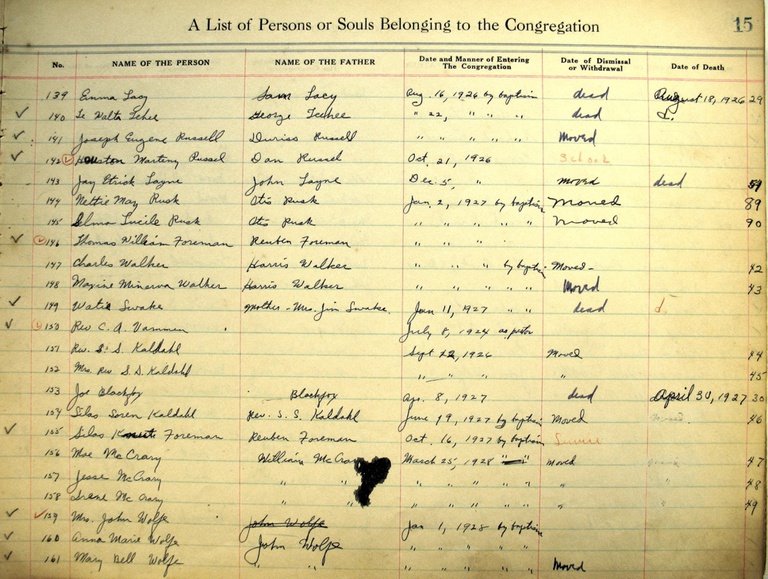 A List of Persons or Souls Belonging to the Congregation 15
No. NAME OF THE PERSON NAME OF THE FATHER Date and Manner of Entering The Congregation Date of Dismissal or Withdrawal Date of Death
139 Emma Lacy Sam Lacy Aug. 16, 1926 by baptism dead August 18, 1926 29
140 George " 22, " " " dead
141 Joseph Eugene Russell Russell " " " " " Moved
142 Houston Martiny Russel Dan Russel Oct. 21, 1926 School
143 Jay Etrick Layne John Layne Dec. 5, " moved dead
144 Nettie May Rusk Otis Rusk Jan. 2, 1927 by baptism Moved 89
145 Elma Lucile Rusk Otis Rusk " " " " " Moved 90
146 Thomas William Foreman Reuben Foreman " " "
147 Charles Walker Harris Walker " " " by baptism Moved - 42
148 Maxine Minerva Walker Harris Walker " " " " " Moved 43
149 Watie Swake Mother - Mrs. Jim Swake Jan 11, 1927 " " dead d.
150 Rev. C. A. Vammen July 8, 1924 as pastor
151 Rev. S. S. Kaldahl Sept 12, 1926 Moved 44
152 Mrs. Rev. S. S. Kaldahl " " " " 45
153 Joe Blackfox Blackfox Apr. 8, 1927 dead April 30, 1927 30
154 Silas Soren Kaldahl Rev. S. S. Kaldahl June 19, 1927 by baptism Moved Moved 46
155 Silas Foreman Reuben Foreman Oct. 16, 1927 by baptism
156 Moe McCrary William McCrary March 25, 1928 " " moved 47
157 Jesse McCrary " " " " " " " " 48
158 Irene McCrary " " " " " " " " 49
159 Mrs. John Wolfe John Wolfe Jan 1, 1928 by baptism
160 Anna Marie Wolfe John Wolfe " " " " "
161 Mary Bell Wolfe " " " " " " " Moved